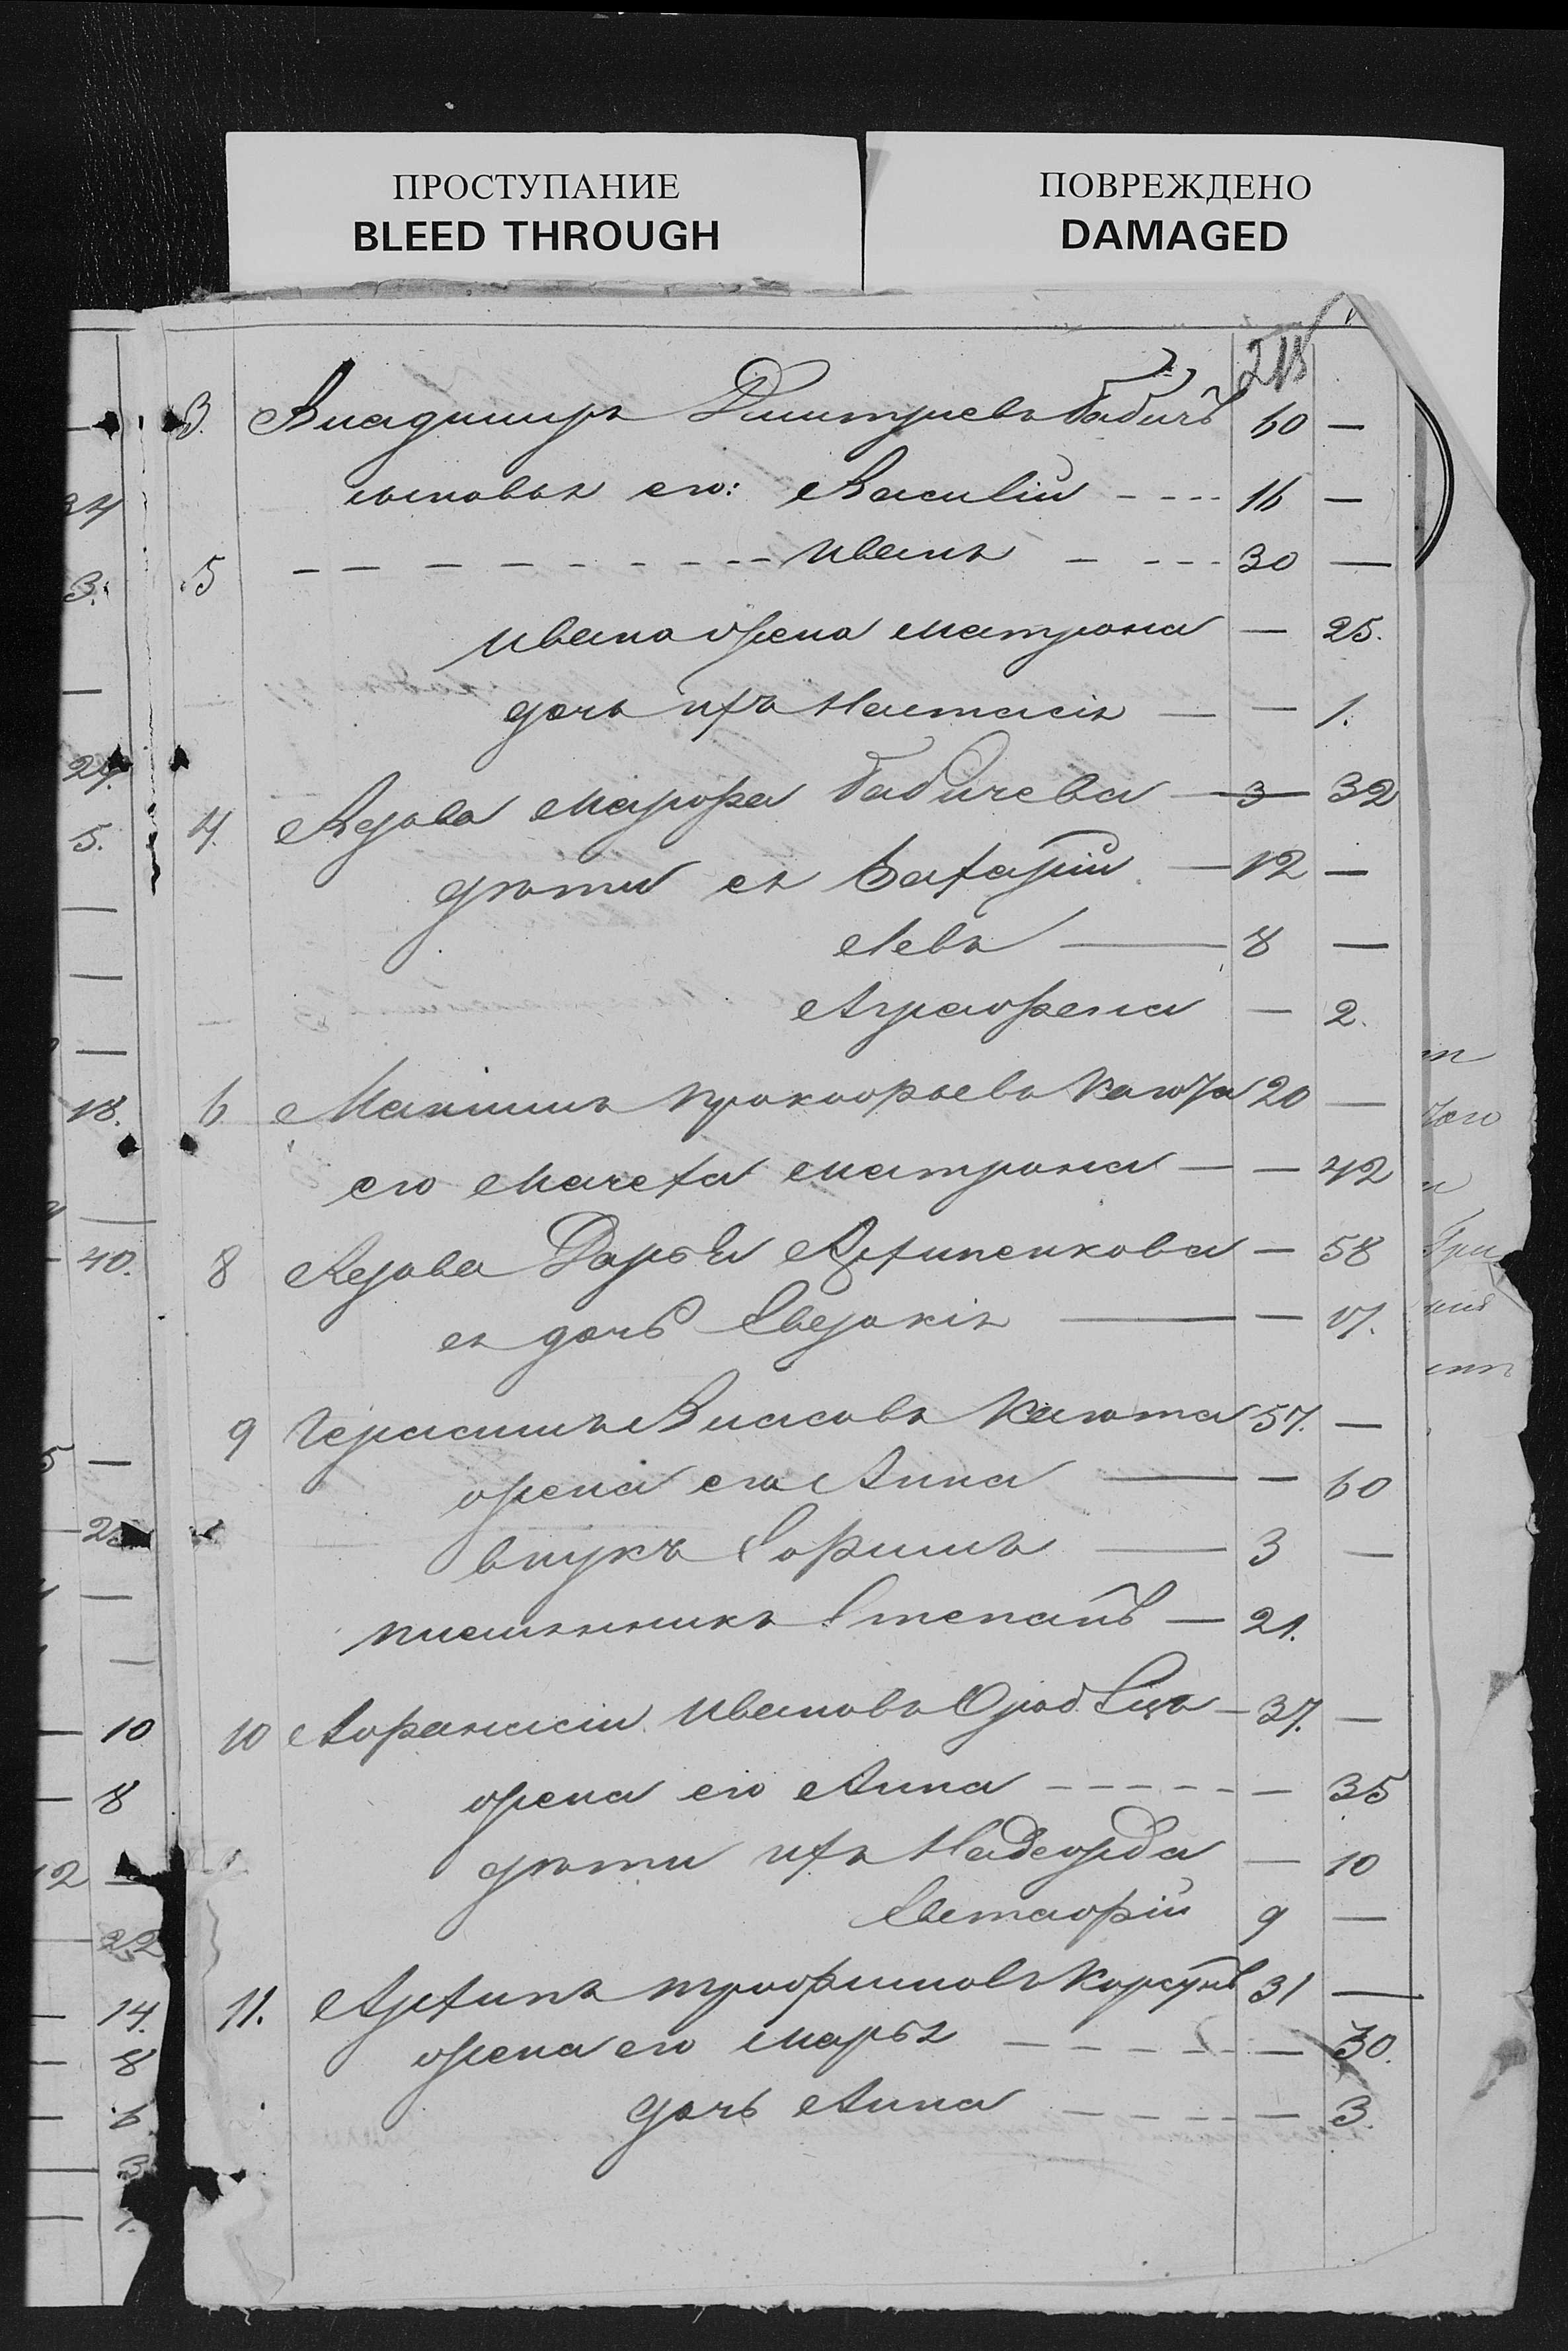 ПРОСТУПАНИЕ
BLEED THROUGH
ПОВРЕЖДЕНО
DAMAGED
218
3. Владиміръ Дмитріевъ Бабичъ 60 —
сыновья его: Василій - - - 16 —
5 — — — — Иванъ — - - - 30 —
Ивана жена Матрона — 25.
дочь ихъ Настасія — — 1.
4. Вдова Марфа Бабичева — 3 32
дѣти ея Захарій — 12 —
Левъ — 8 —
Аграфена — 2.
6 Максимъ Прокофьевъ 20 —
его Мачеха Матрона — — 42
8 Вдова Дарья Архипенкова — 58
ея дочь Евдокія — — 17.
9 Герасимъ Власовъ Каюта 57. —
жена его Анна — — 60
внукъ Ефимъ — 3 —
племянникъ Степанъ — 21.
10 Афанасій Ивановъ — 37. —
жена его Анна - - - - — 35
дѣти ихъ Надежда — 10
Евстафій 9 —
11. Архипъ Трофимовъ Корсунъ 31 —
жена его Марья — — — 30.
дочь Анна — — — 3.
34
3.
24.
5.
18.
40.
10
8
12
22
14.
8
6
3